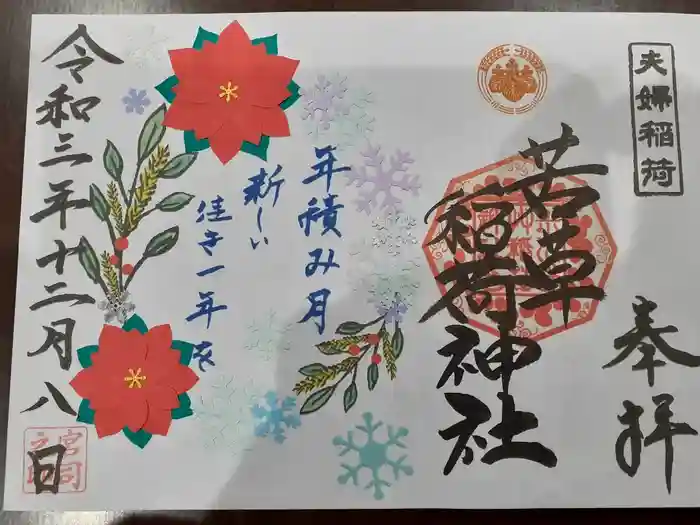 夫婦稲荷
奉拝
若草
稲荷神社
年積み月
新しい
佳き一年を
令和三年十二月八日
宮司